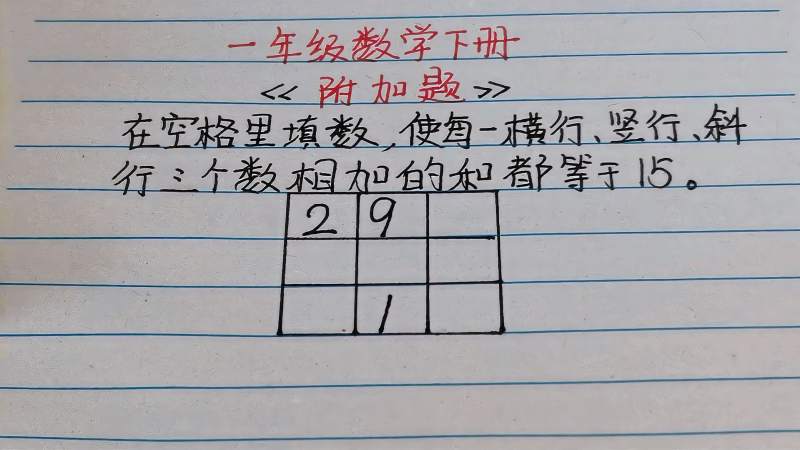 一年级数学下册
<<附加题>>
在空格里填数,使每一横行、竖行、斜
行三个数相加的和都等于15。
2 9
1